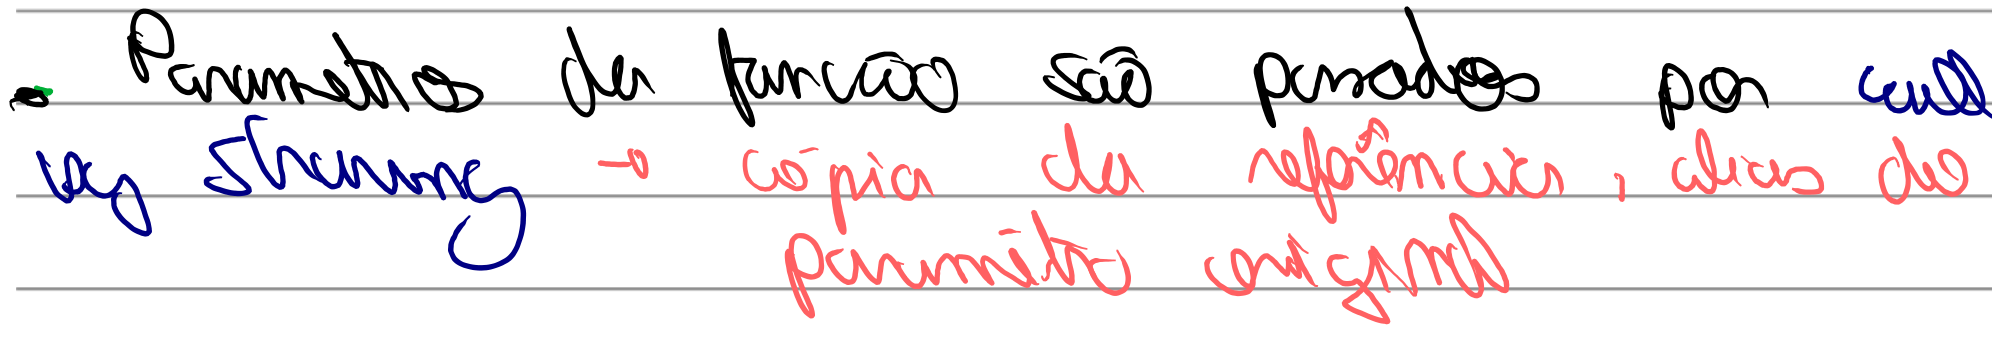 - Parametros da funcão são passados por call
by sharing → cópia da referência, alias do
parametro original